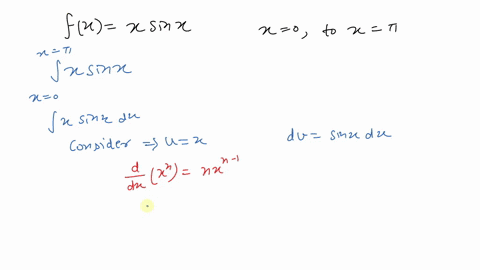 f(x) = x sinx x=0, to x = π
x = π
∫ x sinx
x=0
∫ x sinx dx
Consider ⇒ u = x dv = sinx dx
d/dx (xⁿ) = nxⁿ⁻¹